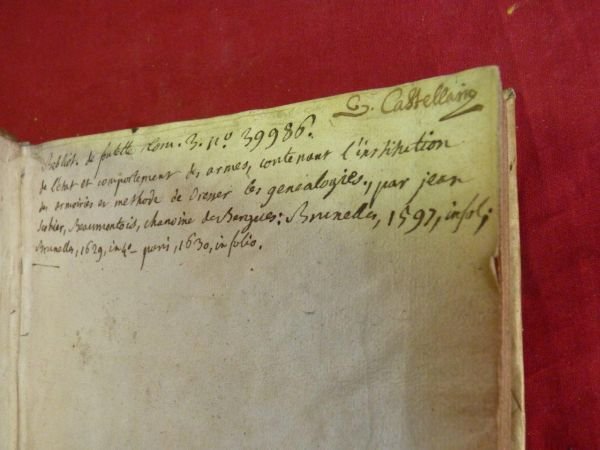 G. Castellain
Biblioth. de fontette tom. 3. no. 39986.
de l'état et comportement des armes, contenant l'institution
des armoiries et methode de dresser les genealogies, par jean
Scohier, Beaumontois, chanoine de Bergues: Bruxelles, 1597, in fol;
Bruxelles, 1629, in 4o — paris, 1630, in folio.